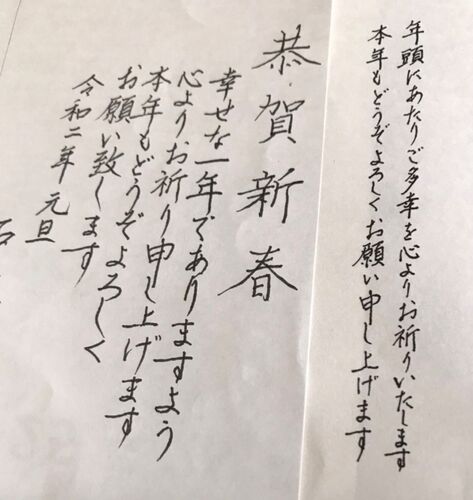 年頭にあたりご多幸を心よりお祈りいたします
本年もどうぞよろしくお願い申し上げます
恭賀新春
幸せな一年でありますよう
心よりお祈り申し上げます
本年もどうぞよろしく
お願い致します
令和二年 元旦